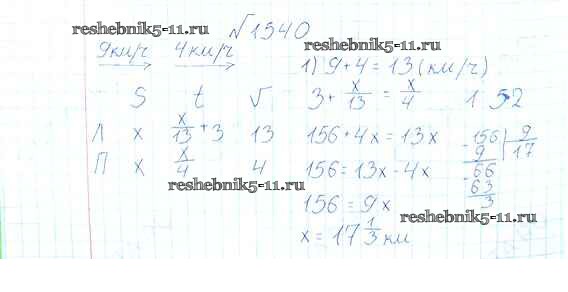 reshebnik5-11.ru
√1340
reshebnik5-11.ru
9км/ч 4км/ч
1) 9+4=13 (км/ч)
S t V
3+ x/13 = x/4 1 52
Л x x/13 +3 13
П x x/4 4
156+4x=13x
156=13x-4x
156=9x
x=17 1/3 км
-156 | 9
9 | 17
-66
63
3
reshebnik5-11.ru
reshebnik5-11.ru